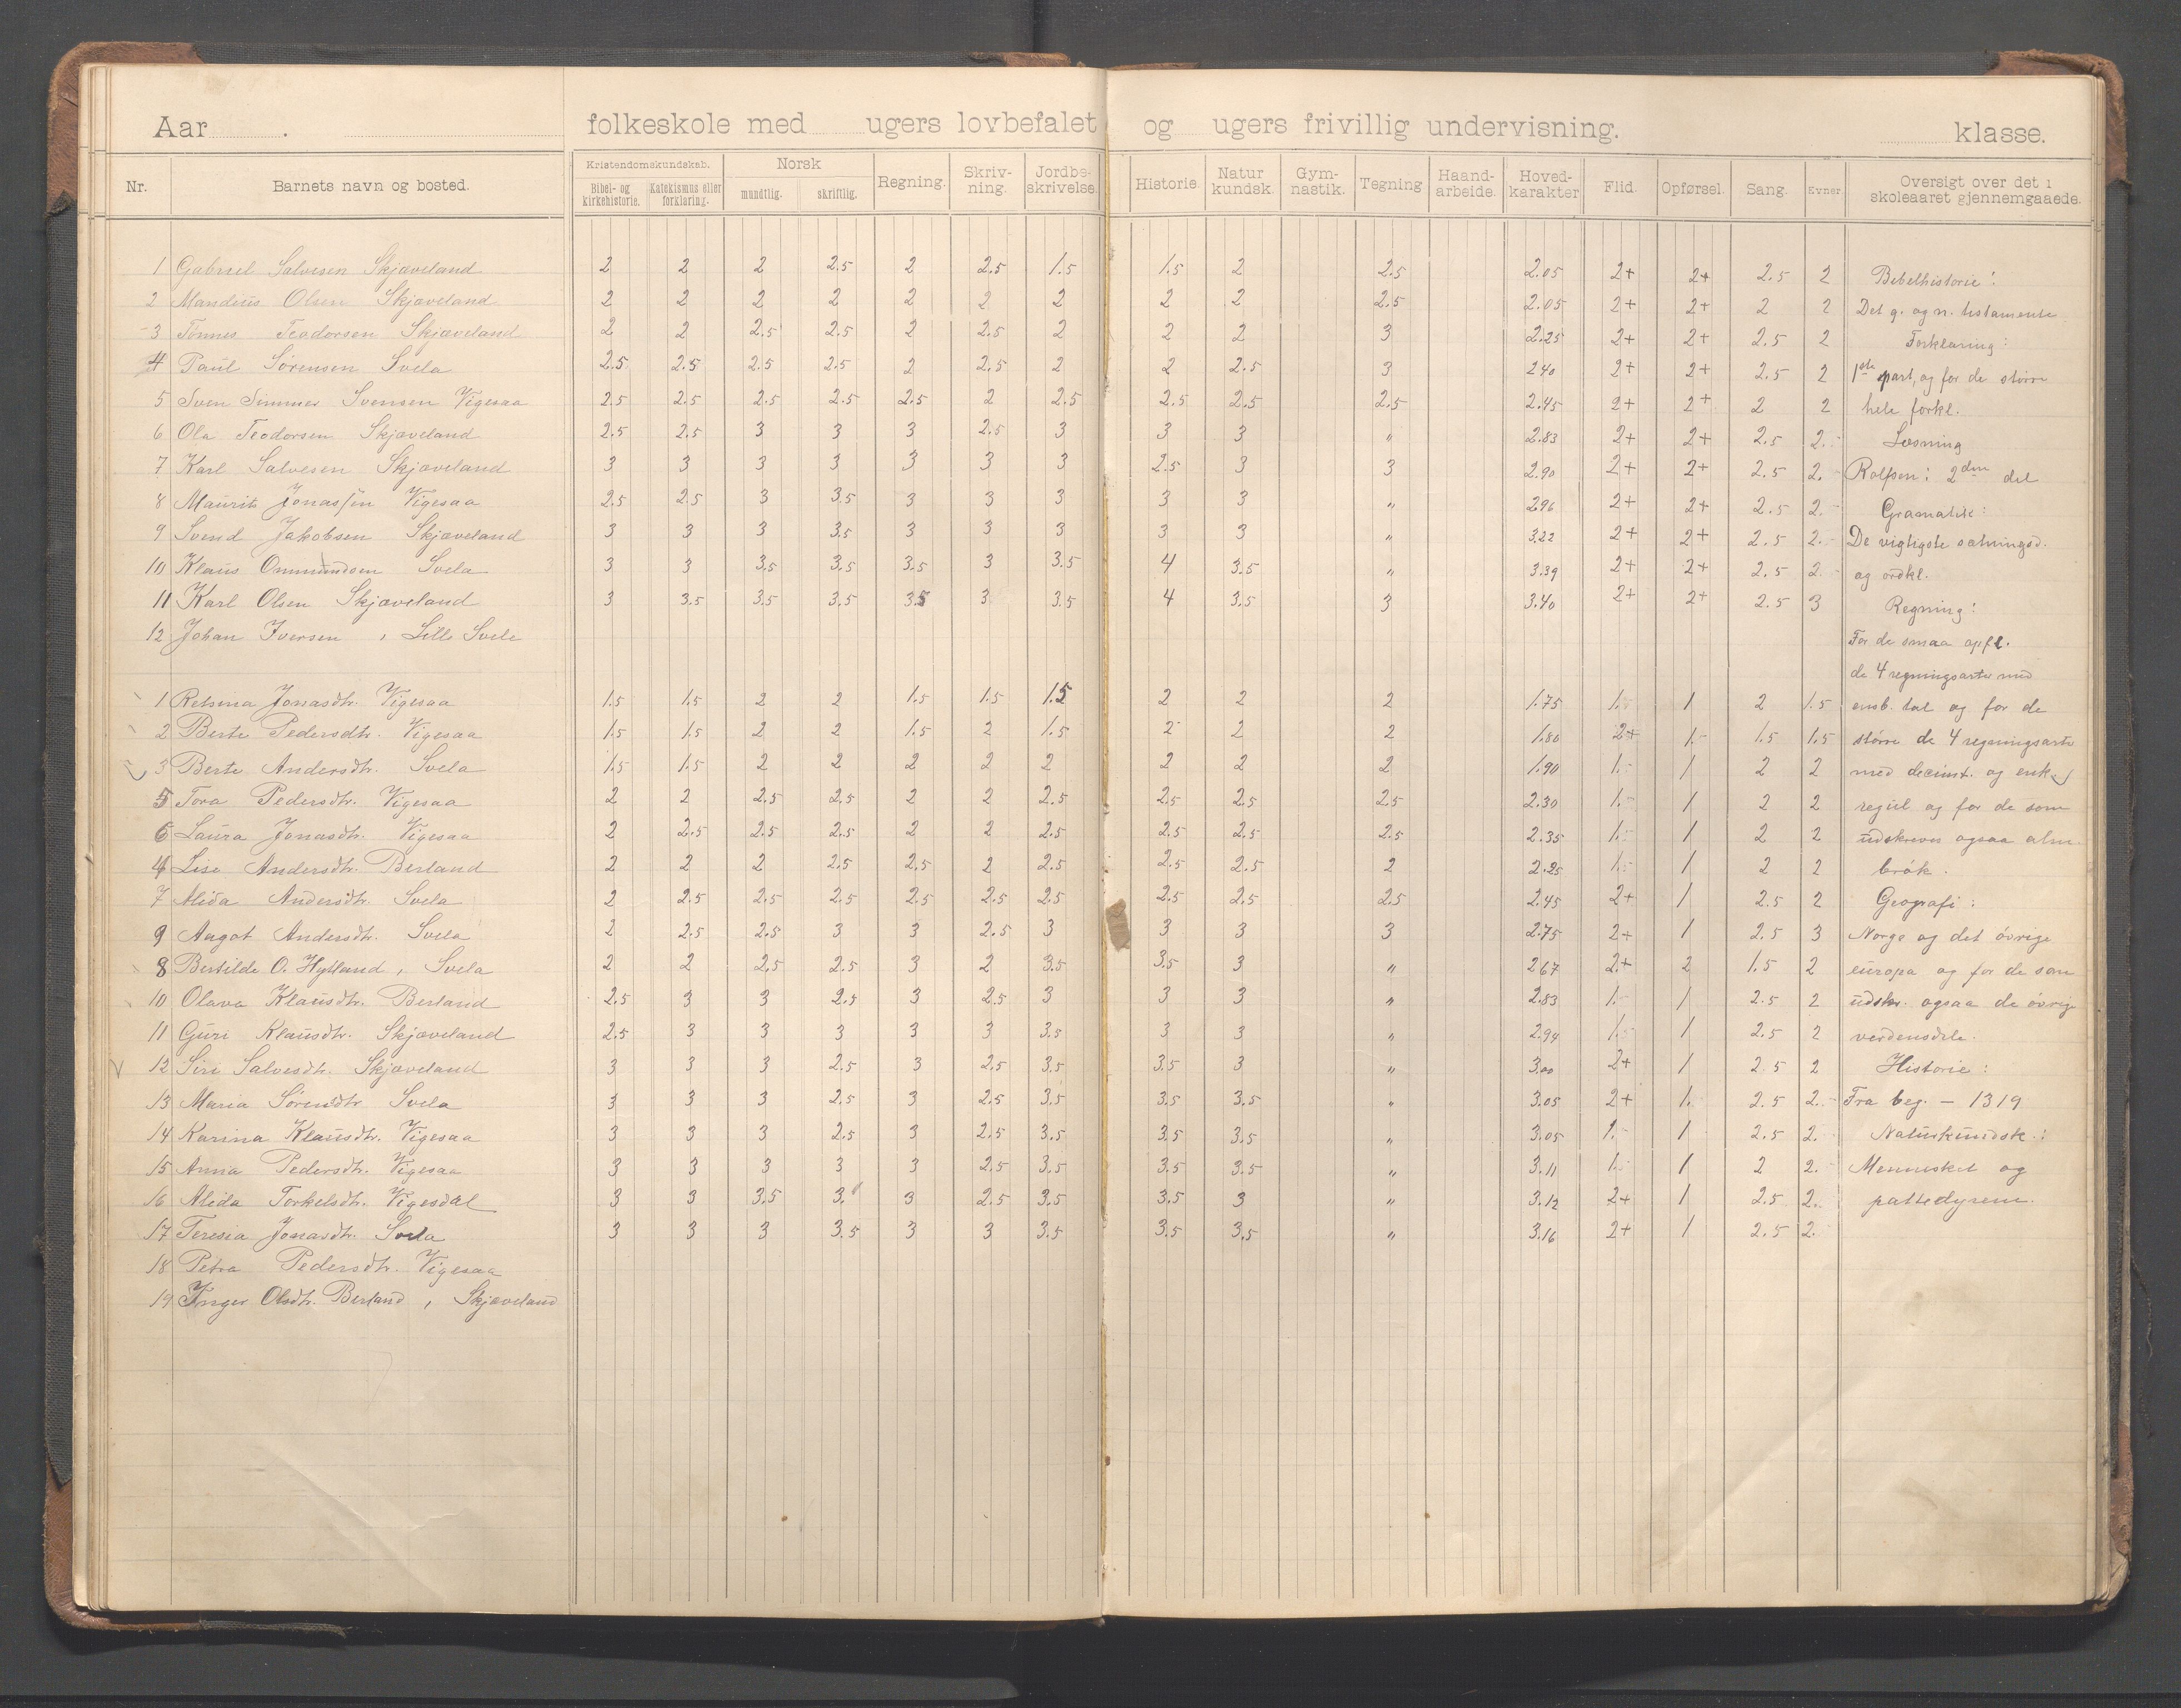 Aar . folkeskole med ugers lovbefalet og ugers frivillig undervisning. klasse.
Nr. Barnets navn og bosted. Kristendomskundskab. Bibel- og kirkehistorie. Katekismus eller forklaring. Norsk mundtlig. skriftlig. Regning. Skriv-ning. Jordbe-skrivelse. Historie. Natur kundsk. Gym-nastik. Tegning Haand-arbeide. Hoved-karakter Flid. Opførsel. Sang. Evner. Oversigt over det i skoleaaret gjennemgaaede.
1 Gabriel Salvesen Skjæveland 2 2 2 2.5 2 2.5 1.5 1.5 2 2.5 2.05 2+ 2+ 2.5 2 Bibelhistorie:
2 Mandius Olsen Skjæveland 2 2 2 2 2 2 2 2 2 2.5 2.05 2+ 2+ 2 2 Det g. og n. testamente
3 Tønnes Teodorsen Skjæveland 2 2 2.5 2.5 2 2.5 2 2 2 3 2.25 2+ 2+ 2.5 2 Forklaring:
4 Paul Sørensen Svela 2.5 2.5 2.5 2.5 2 2.5 2 2 2.5 3 2.40 2+ 2+ 2.5 2 1ste part, og for de større
5 Sven Simmer Svensen Vigesaa 2.5 2.5 2.5 2.5 2.5 2 2.5 2.5 2.5 2.5 2.45 2+ 2+ 2 2 hele forkl.
6 Ola Teodorsen Skjæveland 2.5 2.5 3 3 3 2.5 3 3 3 " 2.83 2+ 2+ 2.5 2.- Læsning
7 Karl Salvesen Skjæveland 3 3 3 3 3 3 3 2.5 3 3 2.90 2+ 2+ 2.5 2.- Rolfsen: 2den del
8 Maurits Jonassen Vigesaa 2.5 2.5 3 3.5 3 3 3 3 3 " 2.96 2+ 2+ 2.5 2.- Gramatik:
9 Svend Jakobsen Skjæveland 3 3 3 3.5 3 3 3 3 3 " 3.22 2+ 2+ 2.5 2.- De vigtigste sætningsd.
10 Klaus Ommundsen Svela 3 3 3.5 3.5 3.5 3 3.5 4 3.5 " 3.39 2+ 2+ 2.5 2.- og ordkl.
11 Karl Olsen Skjæveland 3 3.5 3.5 3.5 3.5 3 3.5 4 3.5 3 3.40 2+ 2+ 2.5 3 Regning:
12 Johan Iversen, Lille Svele For de smaa opfl.
de 4 regningsarter med
1 Retsina Jonasdtr. Vigesaa 1.5 1.5 2 2 1.5 1.5 1.5 2 2 2 1.75 1.- 1 2 1.5 ensb. tal og for de
2 Berte Pedersdtr. Vigesaa 1.5 1.5 2 2 1.5 2 1.5 2 2 2 1.80 2+ 1.- 1.5 1.5 større de 4 regningsarter
3 Berte Andersdtr. Svela 1.5 1.5 2 2 2 2 2 2 2 2 1.90 1.- 1 2 2 med decimt. og enk.
5 Tora Pedersdtr. Vigesaa 2 2 2.5 2.5 2 2 2.5 2.5 2.5 2.5 2.30 1.- 1 2 2 regul og for de som
6 Laura Jonasdtr. Vigesaa 2 2.5 2.5 2.5 2 2 2.5 2.5 2.5 2.5 2.35 1.- 1 2 2 udskreves ogsaa alm.
4 Lise Andersdtr. Berland 2 2 2 2.5 2.5 2 2.5 2.5 2.5 2 2.25 1.- 1 2 2 brøk.
7 Alida Andersdtr. Svela 2 2.5 2.5 2.5 2.5 2.5 2.5 2.5 2.5 2.5 2.45 2+ 1 2.5 2 Geografi:
9 Aagot Andersdtr. Svela 2 2.5 2.5 3 3 2.5 3 3 3 3 2.75 2+ 1 2.5 3 Norge og det øvrige
8 Bertilde O. Hytland, Svela 2 2 2.5 2.5 3 2 3.5 3.5 3 " 2.67 2.+ 2 1.5 2 europa og for de som
10 Olava Klausdtr. Berland 2.5 3 3 2.5 3 2.5 3 3 3 " 2.83 1.- 1 2.5 2 udskr. ogsaa de øvrige
11 Guri Klausdtr. Skjæveland 2.5 3 3 3 3 3 3.5 3 3 " 2.94 1.- 1 2.5 2 verdensdele.
12 Siri Salvesdtr. Skjæveland 3 3 3 2.5 3 2.5 3.5 3.5 3 " 3.00 2+ 1 2.5 2 Historie:
13 Maria Sørensdtr Svela 3 3 3 2.5 3 2.5 3.5 3.5 3.5 " 3.05 2+ 1. 2.5 2.- Fra beg. - 1319
14 Karina Klausdtr. Vigesaa 3 3 3 2.5 3 2.5 3.5 3.5 3.5 " 3.05 1.- 1 2.5 2.- Naturkundsk.:
15 Anna Pedersdtr. Vigesaa 3 3 3 3 3 2.5 3.5 3.5 3.5 " 3.11 1.- 1 2 2.- Mennesket og
16 Alida Torkelsdtr. Vigesdal 3 3 3.5 3 3 2.5 3.5 3.5 3 " 3.12 2+ 1 2.5 2.- pattedyrene.
17 Teresia Jonasdtr. Svela 3 3 3 3.5 3 3 3.5 3.5 3.5 " 3.16 2+ 1 2.5 2.-
18 Petra Pedersdtr. Vigesaa
19 Inger Olsdtr. Berland, Skjæveland